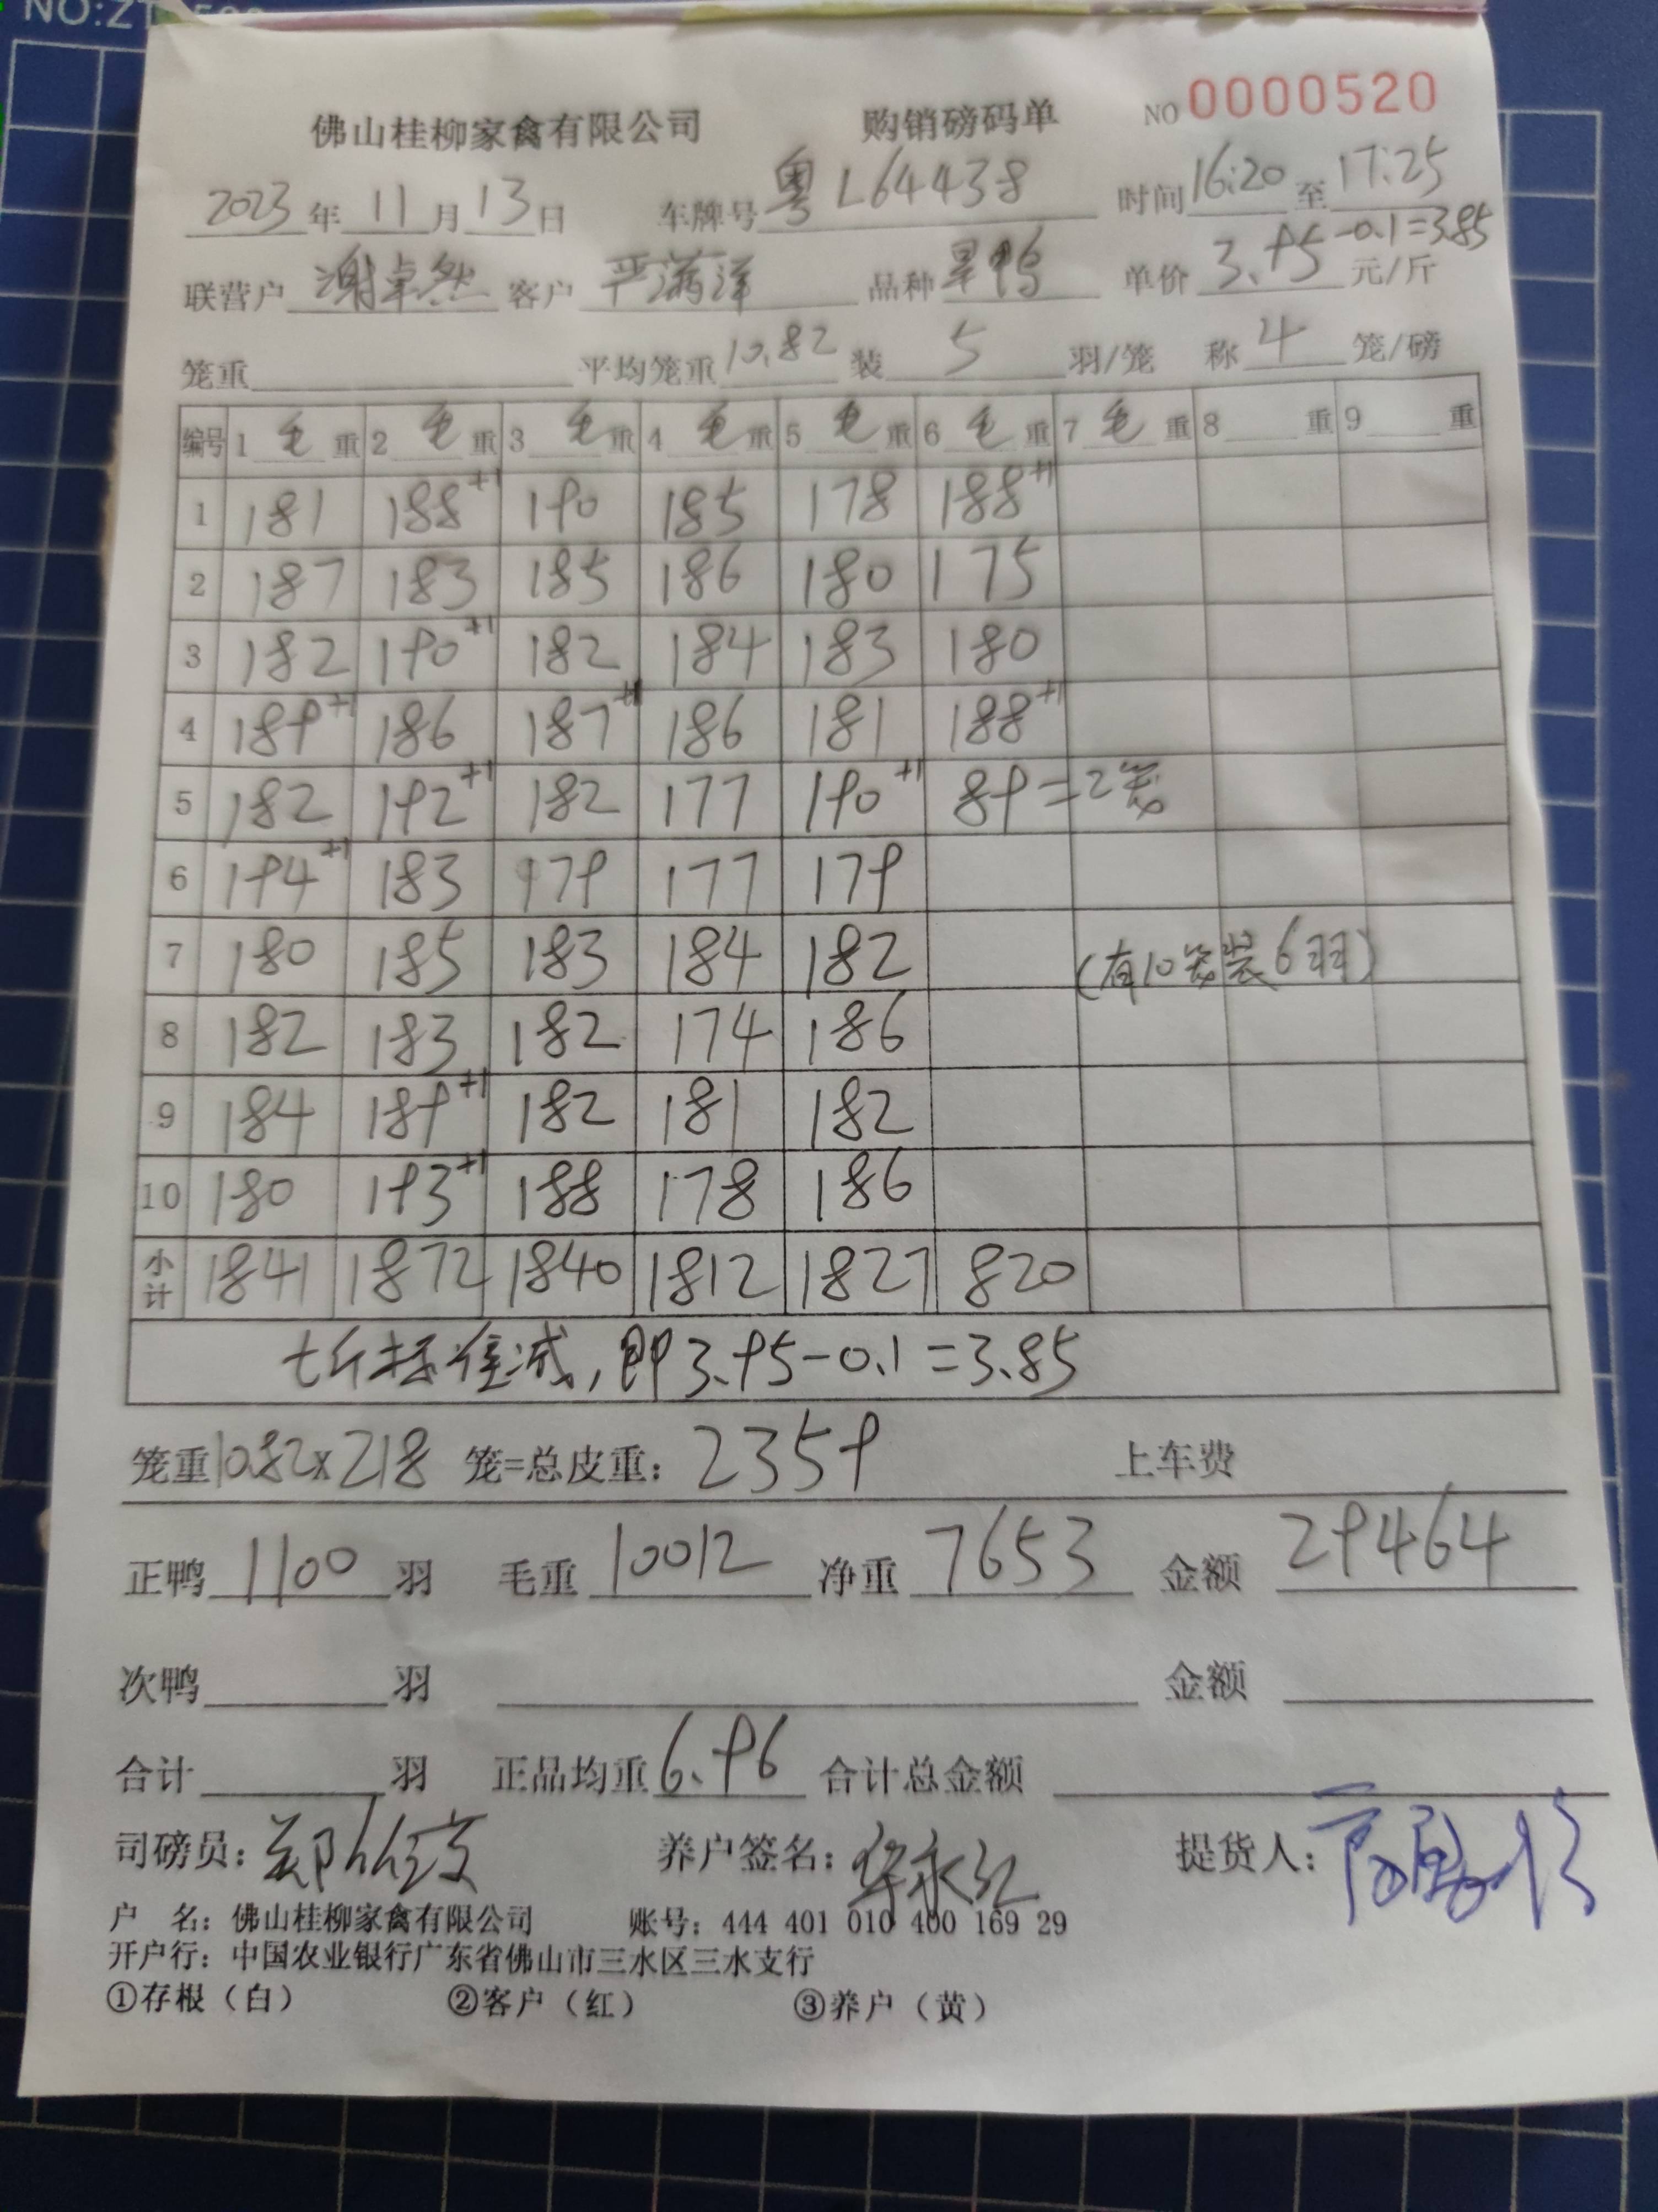 佛山桂柳家禽有限公司 购销磅码单 NO 0000520
2023年11月13日 车牌号 粤L64438 时间 16:20 至 17:25
联营户 谢卓然 客户 严满洋 品种 旱鸭 单价 3.95 -0.1=3.85 元/斤
笼重 平均笼重 10.82 装 5 羽/笼 称 4 笼/磅
编号 1 毛 重 2 毛 重 3 毛 重 4 毛 重 5 毛 重 6 毛 重 7 毛 重 8 重 9 重
1 181 188+1 190 185 178 188+1
2 187 183 185 186 180 175
3 182 190+1 182 184 183 180
4 189+1 186 187+1 186 181 188+1
5 182 192+1 182 177 190+1 89=2笼
6 194+1 183 179 177 179
7 180 185 183 184 182 (有10笼装6羽)
8 182 183 182 174 186
9 184 189+1 182 181 182
10 180 193+1 188 178 186
小计 1841 1872 1840 1812 1827 820
七斤标准减,即3.95-0.1=3.85
笼重 10.82×218 笼=总皮重: 2359 上车费
正鸭 1100 羽 毛重 10012 净重 7653 金额 29464
次鸭 羽 金额
合计 羽 正品均重 6.96 合计总金额
司磅员: 养户签名: 华永红 提货人:
户 名: 佛山桂柳家禽有限公司 账号: 444 401 010 400 169 29
开户行: 中国农业银行广东省佛山市三水区三水支行
①存根(白) ②客户(红) ③养户(黄)